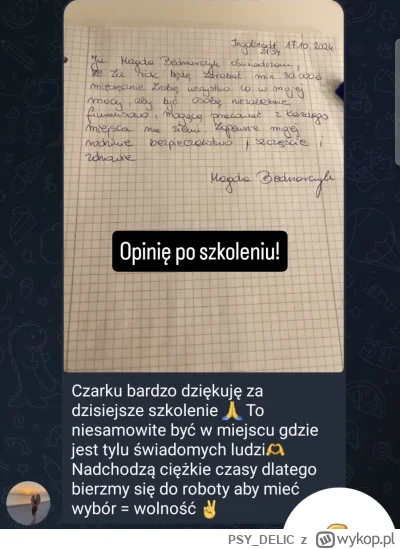 Ingolstadt 17.10.2024
21:34
Ja Magda Bednarczyk oświadczam,
że za rok będę zarabiać min 30.000
miesięcznie. Zrobę wszystko co w mojej
mocy, aby być osobą niezależnie
finansowo, mogącą pracować z każdego
miejsca na ziemi. Zapewnię mojej
rodzinie bezpieczeństwo, szczęście i
zdrowie
Magda Bednarczyk
Opinię po szkoleniu!
Czarku bardzo dziękuję za
dzisiejsze szkolenie 🙏 To
niesamowite być w miejscu gdzie
jest tylu świadomych ludzi🫶
Nadchodzą ciężkie czasy dlatego
bierzmy się do roboty aby mieć
wybór = wolność ✌
PSY_DELIC z wykop.pl